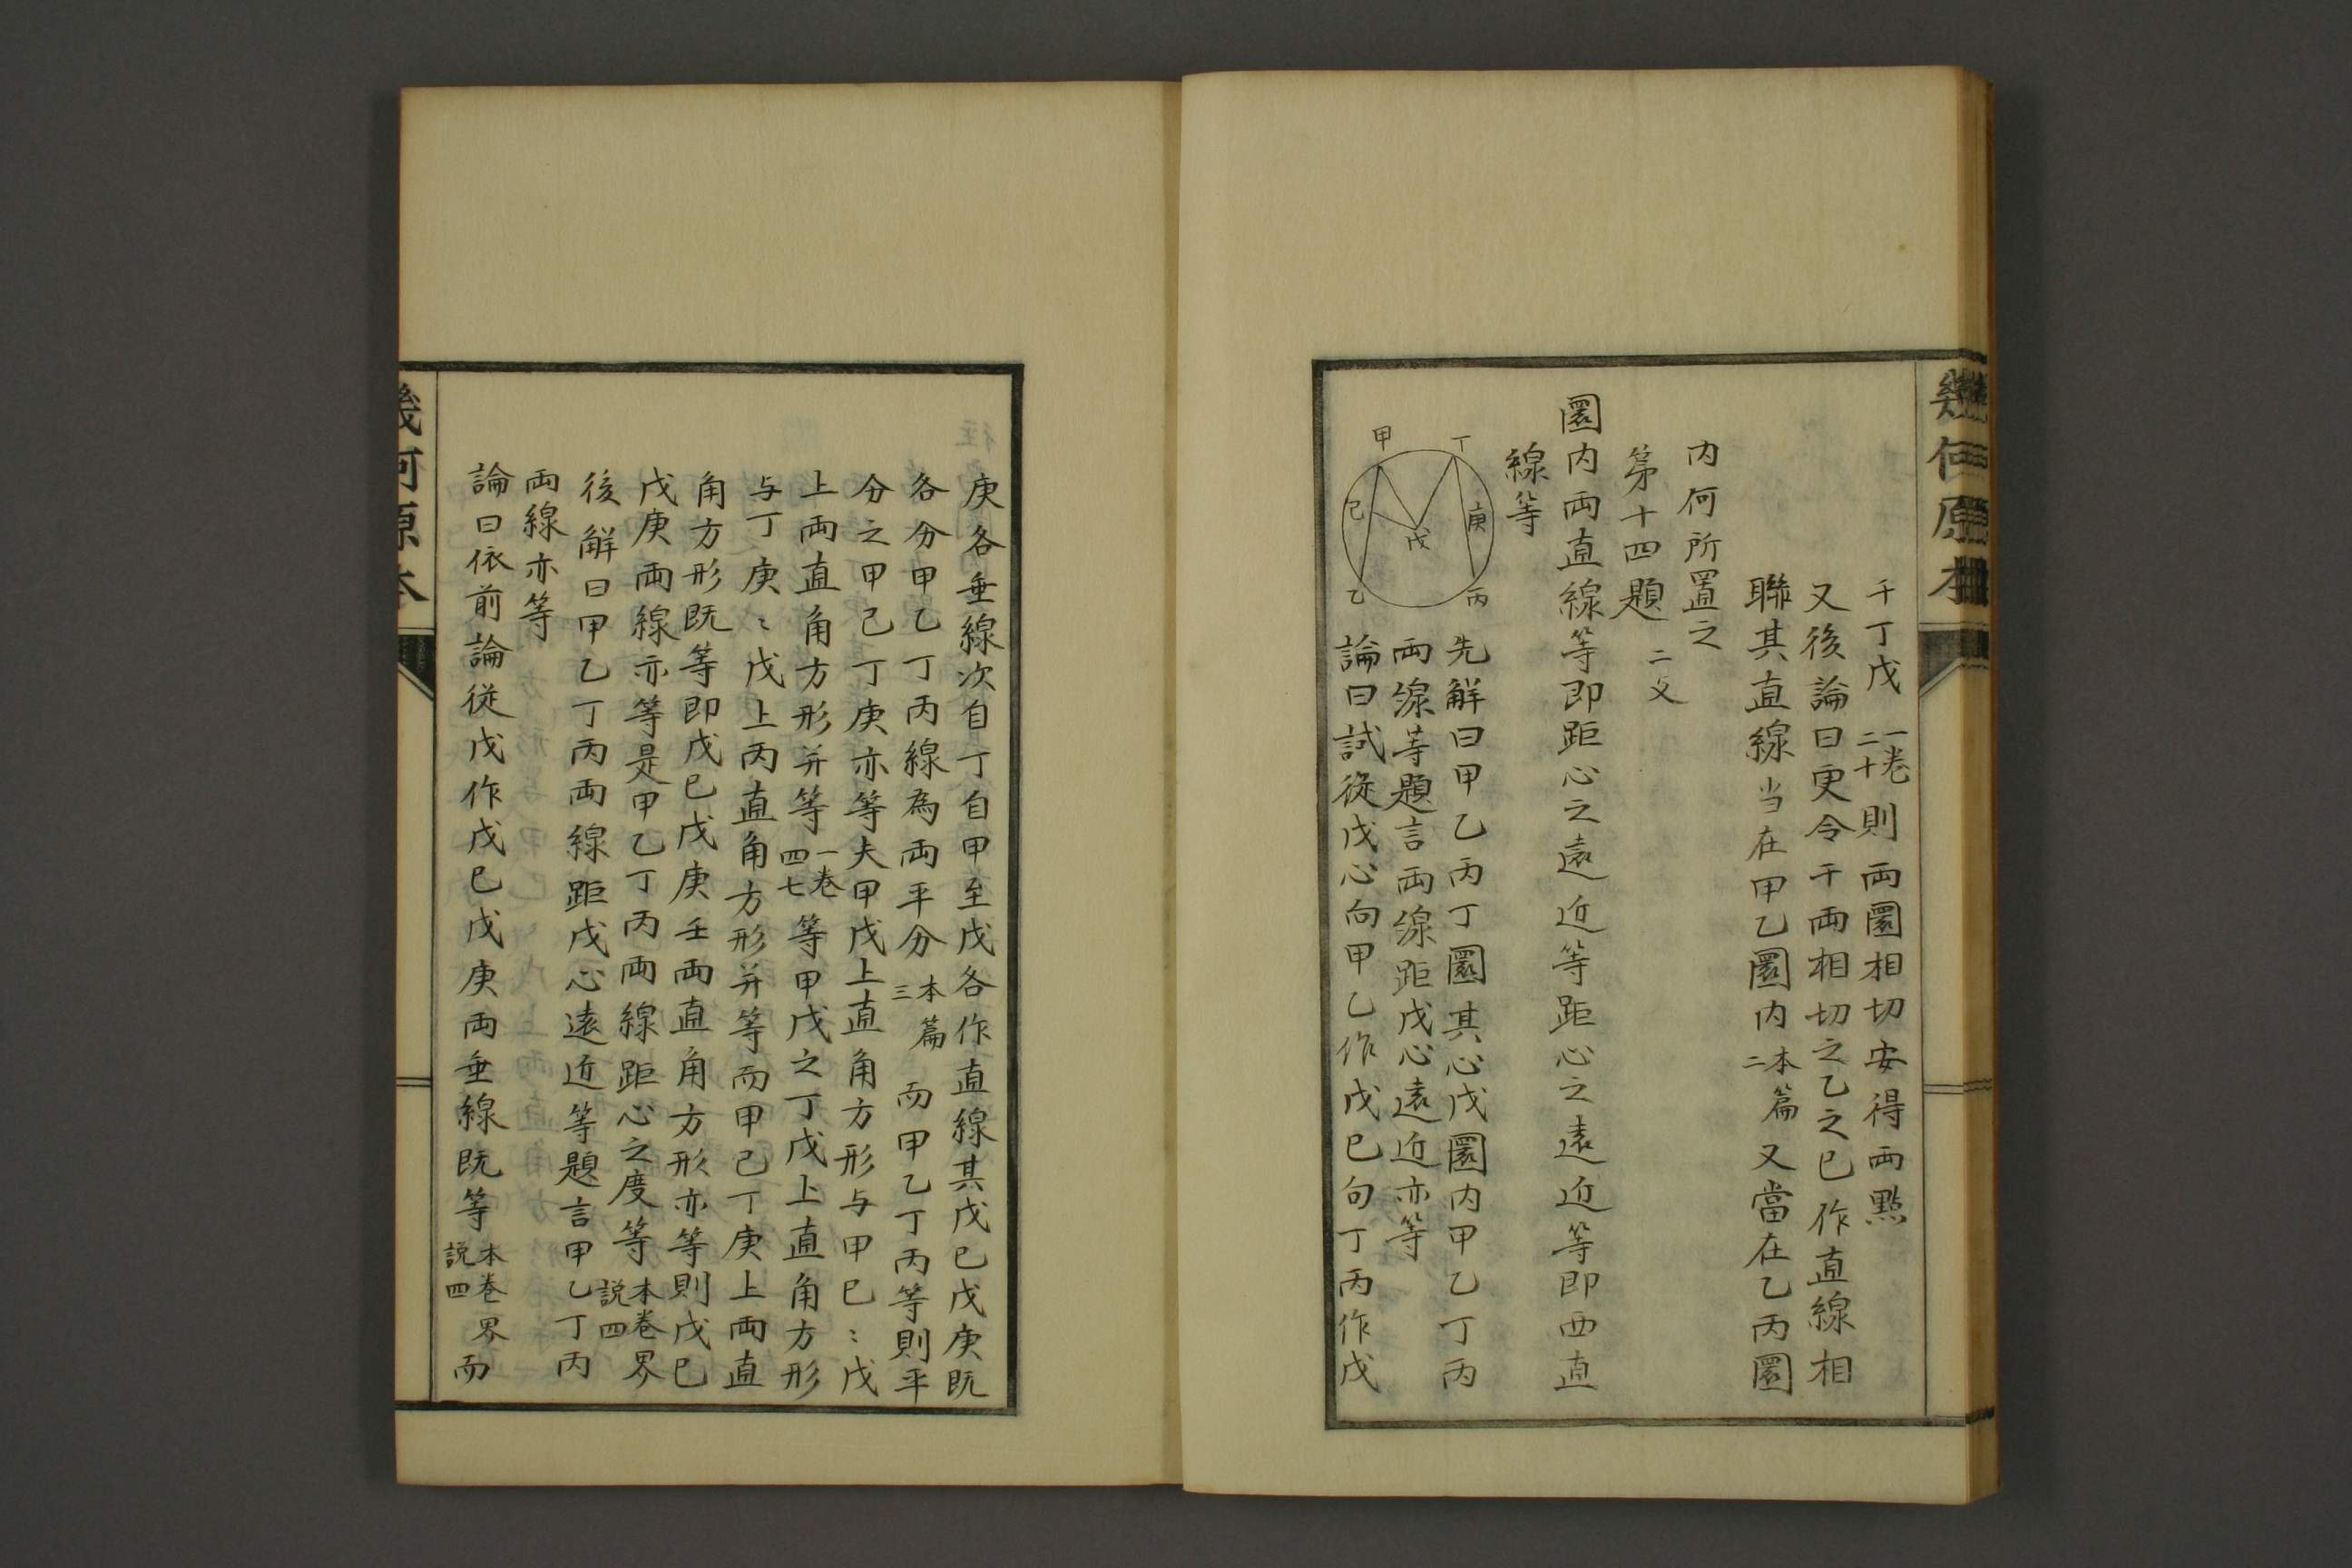 幾何原本
千丁戊一卷二十則両圜相切安得両點
又後論曰更令千両相切之乙之已作直線相
聯其直線当在甲乙圜内本篇二又當在乙丙圜
内何所置之
第十四題二支
圜内両直線等即距心之遠近等距心之遠近等即西直
線等
甲
丁
己
庚
戊
乙
丙
先觧曰甲乙丙丁圜其心戊圜内甲乙丁丙
両線等題言両線距戊心遠近亦等
論曰試從戊心向甲乙作戊已句丁丙作戊
庚各垂線次自丁自甲至戊各作直線其戊已戊庚既
各分甲乙丁丙線為両平分本篇三而甲乙丁丙等則平
分之甲己丁庚亦等夫甲戊上直角方形与甲已〻戊
上両直角方形并等一卷四七等甲戊之丁戊上直角方形
与丁庚〻戊上丙直角方形并等而甲己丁庚上両直
角方形既等即戊已戊庚壬両直角方形亦等則戊已
戊庚両線亦等是甲乙丁丙両線距心之度等本卷界説四
後觧曰甲乙丁丙両線距戊心遠近等題言甲乙丁丙
両線亦等
論曰依前論從戊作戊已戊庚両垂線既等本卷界説四而
幾何原本